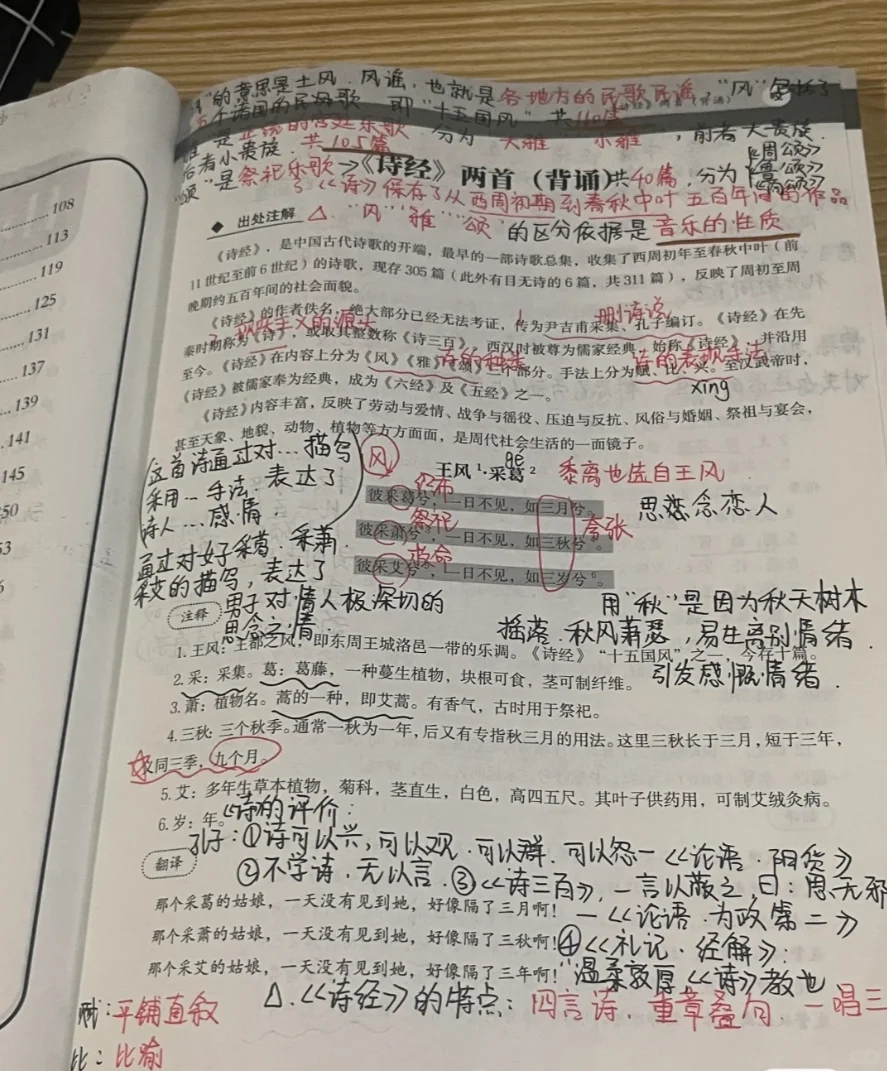 的意思是土风、风谣,也就是各地方的民歌民谣,"风"包括了
十五个诸国的民间歌,即"十五国风",共160篇
"是正统的宫廷乐歌,分为"大雅""小雅",前者大贵族,
后者小贵族。共105篇
"颂"是祭祀乐歌→《诗经》两首(背诵)共40篇,分为《周颂》《鲁颂》《商颂》
《诗》保存了从西周初期到春秋中叶五百年间的作品
◆ 出处注解 △."风""雅""颂"的区分依据是音乐的性质
《诗经》,是中国古代诗歌的开端,最早的一部诗歌总集,收集了西周初年至春秋中叶(前
11世纪至前6世纪)的诗歌,现存305篇(此外有目无诗的6篇,共311篇),反映了周初至周
晚期约五百年间的社会面貌。
删诗说
《诗经》的作者佚名,绝大部分已经无法考证,传为尹吉甫采集、孔子编订。《诗经》在先
现实主义的源头
秦时期称为《诗》,或取其整数称《诗三百》,西汉时被尊为儒家经典,始称《诗经》,并沿用
诗的种类
诗的表现手法
至今。《诗经》在内容上分为《风》《雅》《颂》三个部分。手法上分为赋、比、兴。至汉武帝时,
xìng
《诗经》被儒家奉为经典,成为《六经》及《五经》之一。
《诗经》内容丰富,反映了劳动与爱情、战争与徭役、压迫与反抗、风俗与婚姻、祭祖与宴会,
甚至天象、地貌、动物、植物等方方面面,是周代社会生活的一面镜子。
这首诗通过对…描写
采用…手法,表达了
诗人…感情.
通过对好采葛、采萧、
采艾的描写,表达了
男子对情人极深切的
思念之情.
风
gé
王风¹·采葛² 黍离也选自王风
织布
彼采葛兮,一日不见,如三月兮。
思恋念恋人
祭祀
彼采萧³兮,一日不见,如三秋兮⁴。
夸张
彼采艾兮⁵,一日不见,如三岁兮⁶。
用"秋"是因为秋天树木
摇落、秋风萧瑟,易生离别情绪
引发感慨情绪.
注释
1.王风:王都之风,即东周王城洛邑一带的乐调。《诗经》"十五国风"之一,今存十篇。
2.采:采集。葛:葛藤,一种蔓生植物,块根可食,茎可制纤维。
3.萧:植物名。蒿的一种,即艾蒿。有香气,古时用于祭祀。
4.三秋:三个秋季。通常一秋为一年,后又有专指秋三月的用法。这里三秋长于三月,短于三年,
义同三季,九个月。
5.艾:多年生草本植物,菊科,茎直生,白色,高四五尺。其叶子供药用,可制艾绒灸病。
6.岁:年。
《诗》的评价:
孔子:①诗可以兴,可以观.可以群.可以怨—《论语·阳货》
②不学诗,无以言.③《诗三百》,一言以蔽之,曰:思无邪
—《论语·为政第二》
④《礼记·经解》:
"温柔敦厚,《诗》教也
翻译
那个采葛的姑娘,一天没有见到她,好像隔了三月啊!
那个采萧的姑娘,一天没有见到她,好像隔了三秋啊!
那个采艾的姑娘,一天没有见到她,好像隔了三年啊!
△.《诗经》的特点:四言诗.重章叠句.一唱三
赋:平铺直叙
比:比喻
108
113
119
125
131
137
139
141
145